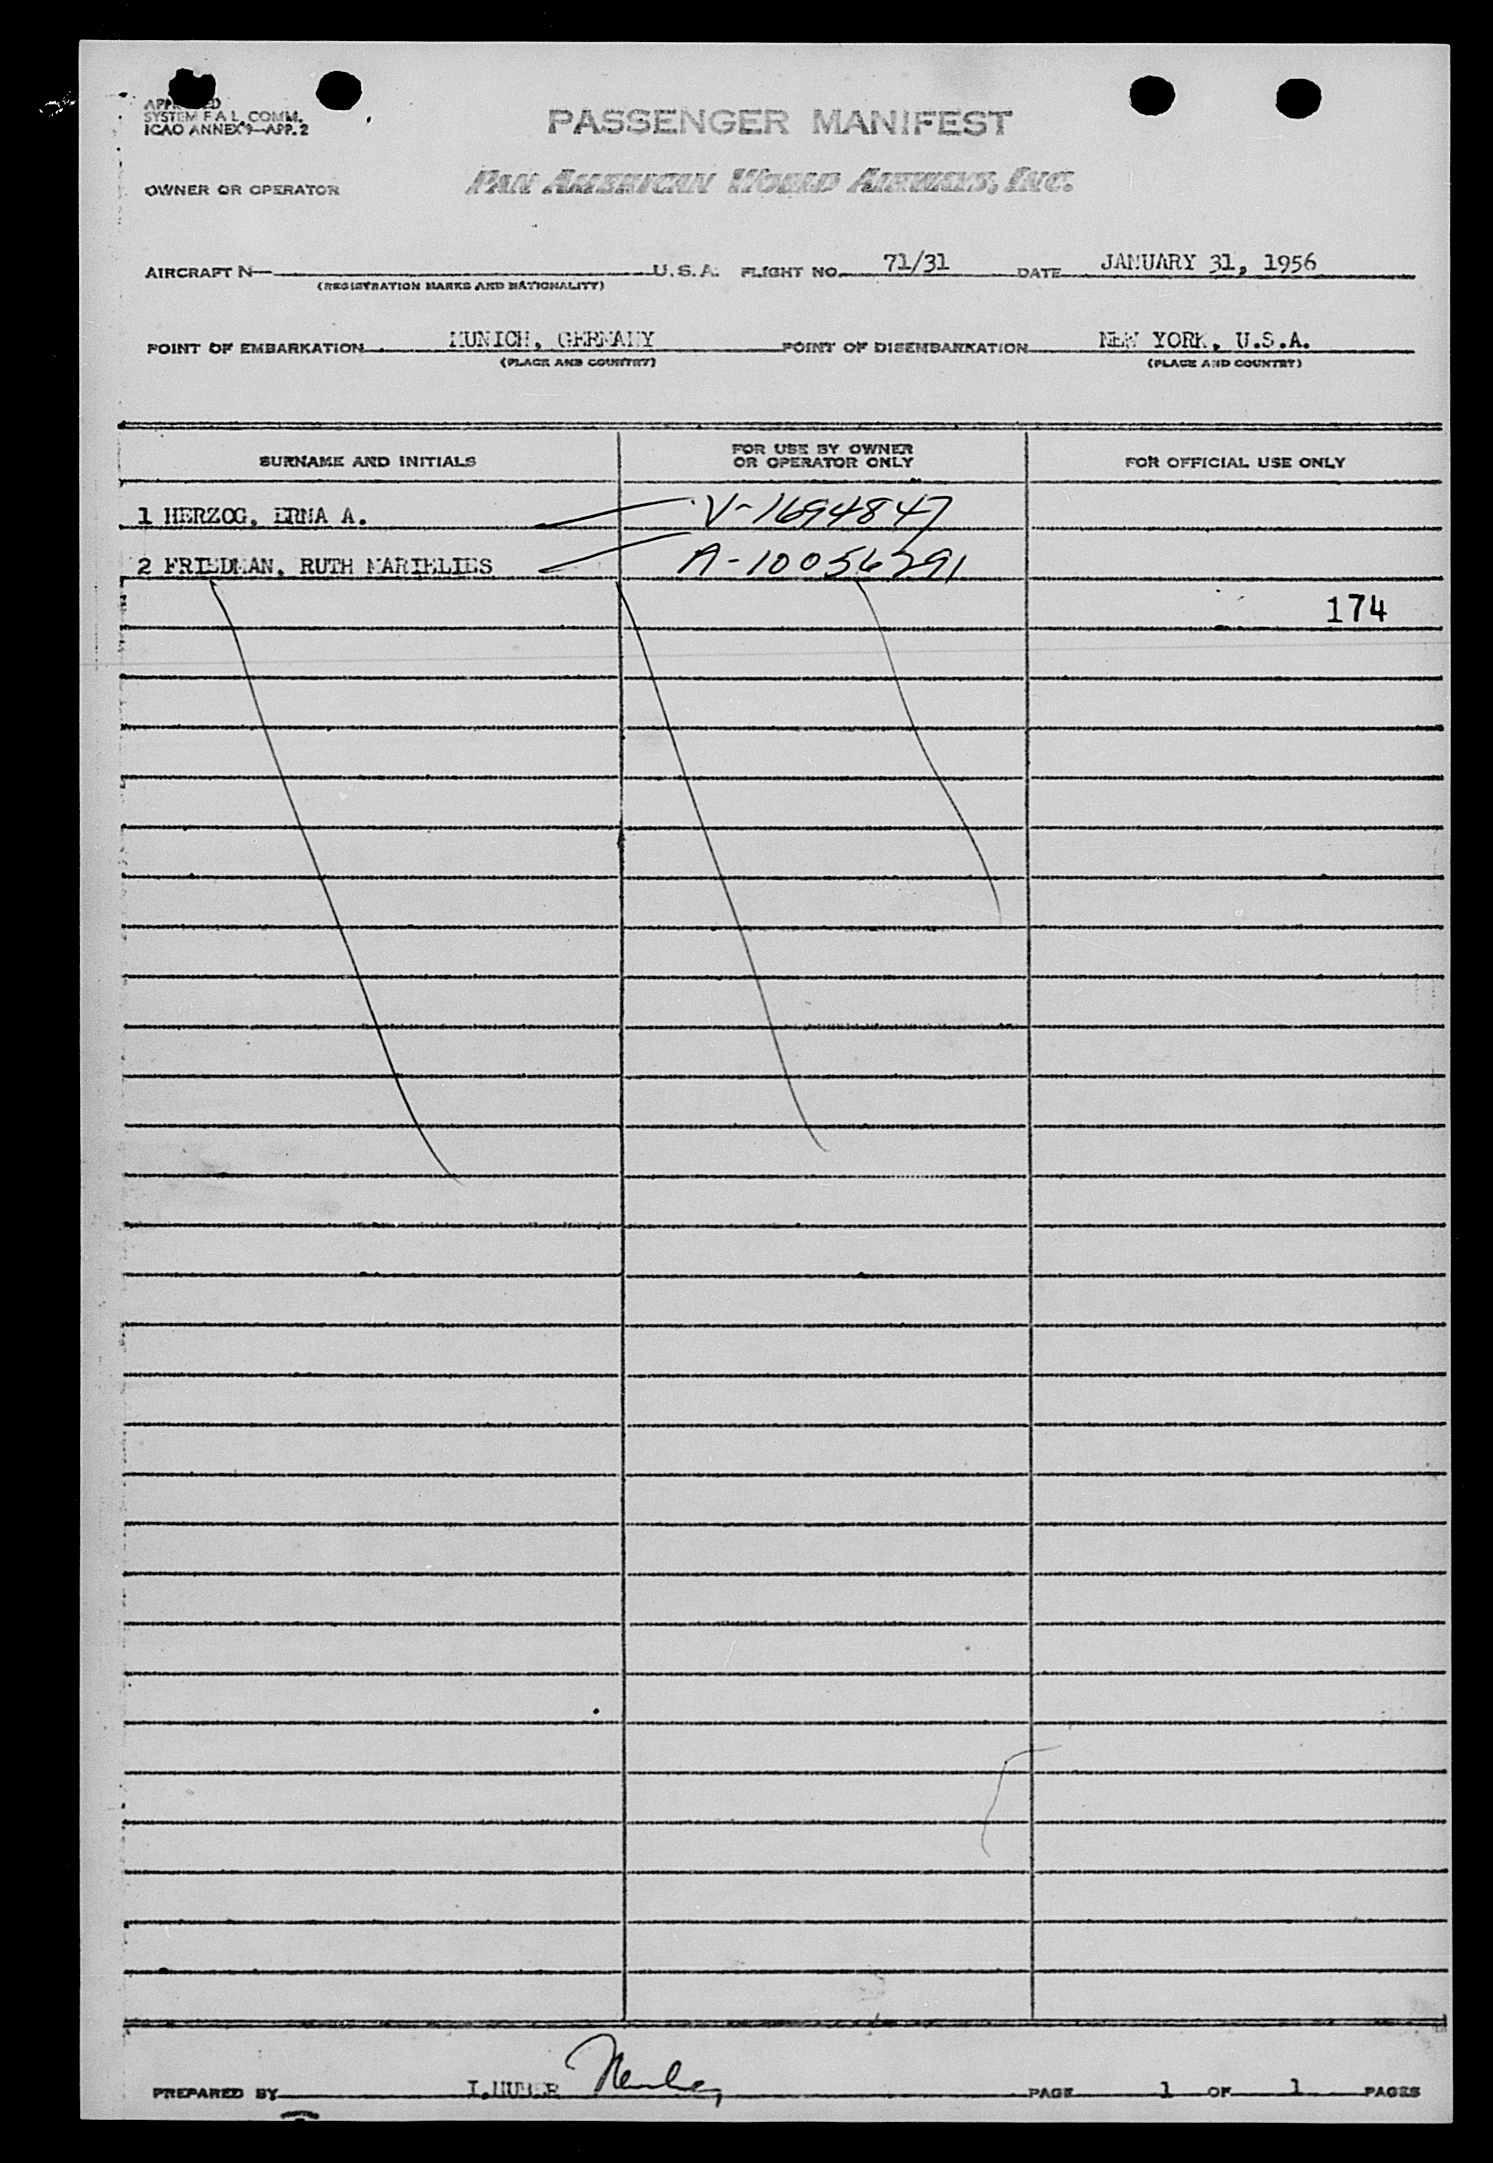 APPROVED
SYSTEM F A L COMM.
ICAO ANNEX 9—APP. 2
PASSENGER MANIFEST
OWNER OR OPERATOR PAN AMERICAN WORLD AIRWAYS, INC.
AIRCRAFT N— U. S. A. FLIGHT NO. 71/31 DATE JANUARY 31, 1956
(REGISTRATION MARKS AND NATIONALITY)
POINT OF EMBARKATION MUNICH, GERMANY POINT OF DISEMBARKATION NEW YORK, U.S.A.
(PLACE AND COUNTRY) (PLACE AND COUNTRY)
SURNAME AND INITIALS FOR USE BY OWNER OR OPERATOR ONLY FOR OFFICIAL USE ONLY
1 HERZOG, ERNA A. V-1694847
2 FRIEDMAN, RUTH MARIELIES A-10056291
174
PREPARED BY I.HUBER Huber PAGE 1 OF 1 PAGES